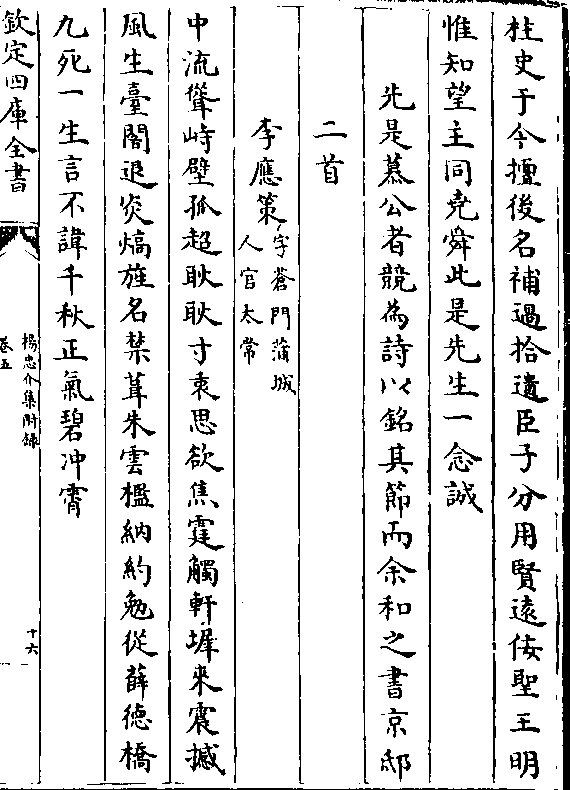 柱史于今擅後名補過拾遺臣子分用賢遠佞聖王明
惟知望主同堯舜此是先生一念誠
先是慕公者競為詩以銘其節而余和之書京邸
二首
李應策字蒼門蒲城
人官太常
中流聳峙壁孤超耿耿寸衷思欲焦霆觸軒墀來震撼
風生臺閣退炎熇旌名禁葺朱雲檻納約勉從薛德橋
九死一生言不諱千秋正氣碧冲霄
欽定四庫全書
楊忠介集附錄
卷五
十六